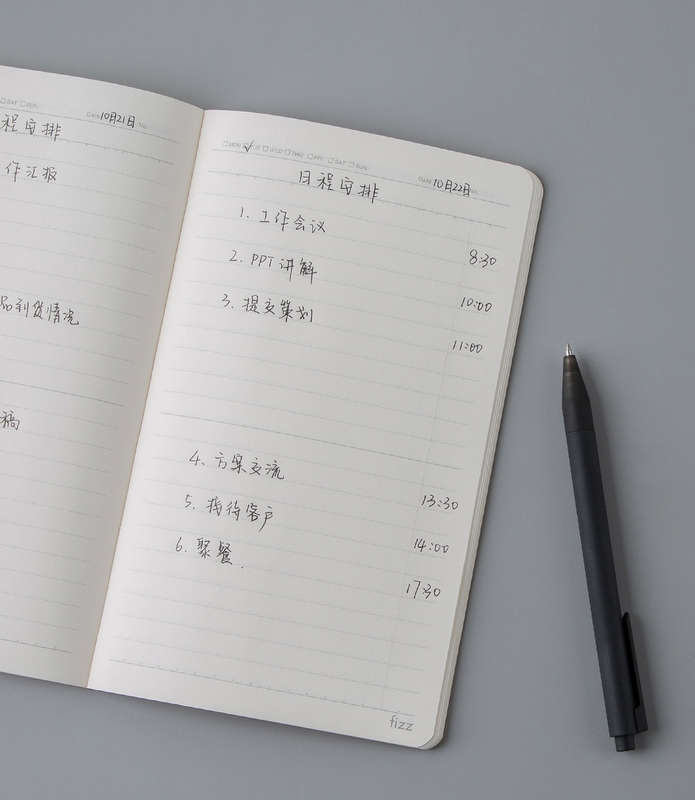 SAT SUN
DATE 10月21日 NO.
程安排
作汇报
品到货情况
稿
MON TUE WED THU FRI SAT SUN
DATE 10月22日 NO.
日程安排
1. 工作会议 8:30
2. PPT 讲解 10:00
3. 提交策划 11:00
4. 方案交流 13:30
5. 接待客户 14:00
6. 聚餐. 17:30
fizz